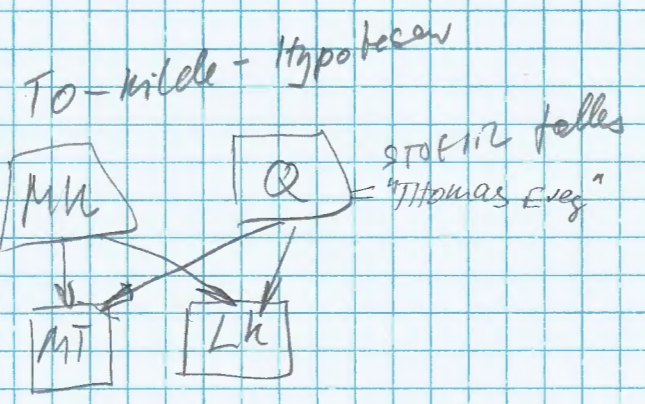 To-kilde-Hypotesen
MK
Q
falles
= "Thomas Eveg"
MT
LK